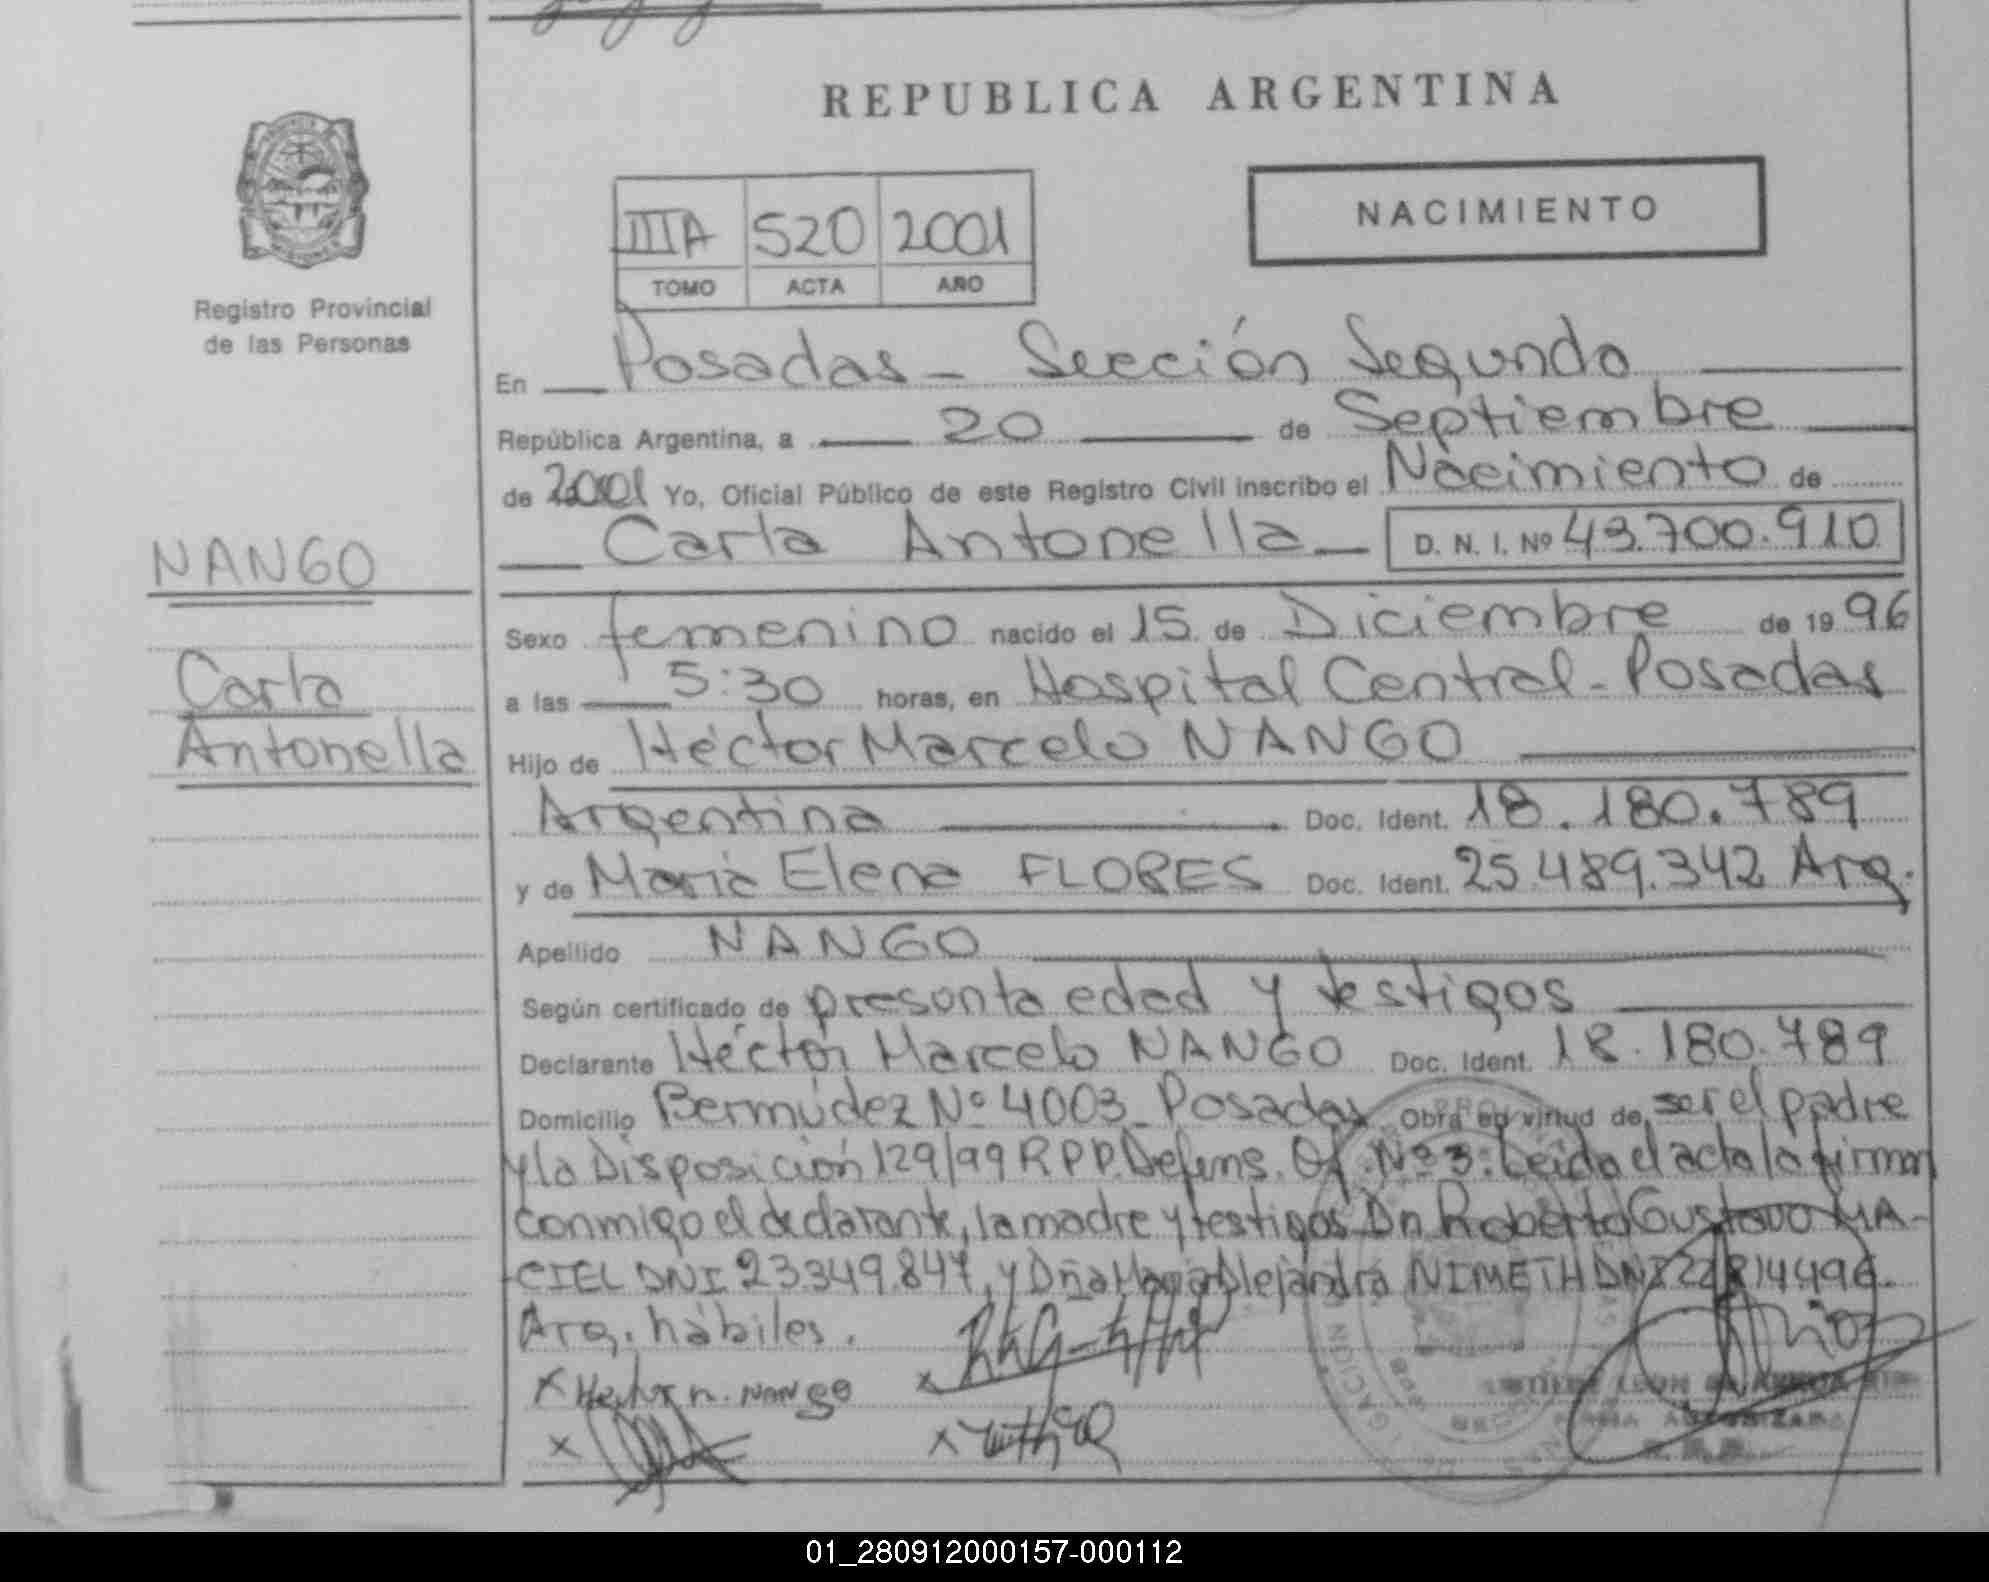 REPUBLICA ARGENTINA
NACIMIENTO
IIIA 520 2001
TOMO ACTA AÑO
Registro Provincial
de las Personas
En Posadas - Sección Segunda
República Argentina, a 20 de Septiembre
de 2001 Yo, Oficial Público de este Registro Civil inscribo el Nacimiento de
Carla Antonella D. N. I. Nº 43.700.910
NANGO
Carla
Antonella
Sexo femenino nacido el 15 de Diciembre de 1996
a las 5:30 horas, en Hospital Central - Posadas
Hijo de Héctor Marcelo NANGO
Argentina Doc. Ident. 18.180.789
y de María Elena FLORES Doc. Ident. 25.489.342 Arg.
Apellido NANGO
Según certificado de presonta edad y testigos
Declarante Héctor Marcelo NANGO Doc. Ident. 18.180.789
Domicilio Bermúdez Nº 4003 - Posadas Obra en virtud de ser el padre
y la Disposición 129/99 R.P.P. Defens. Of. Nº 3. Leida el acta la firman
conmigo el declarante, la madre y testigos Dn Roberto Gustavo MA-
CIEL DNI 23.349.847, y Dña María Alejandra NIMETH DNI
Arg. hábiles.
x Hector m. NANGO
x
x
x
01_280912000157-000112